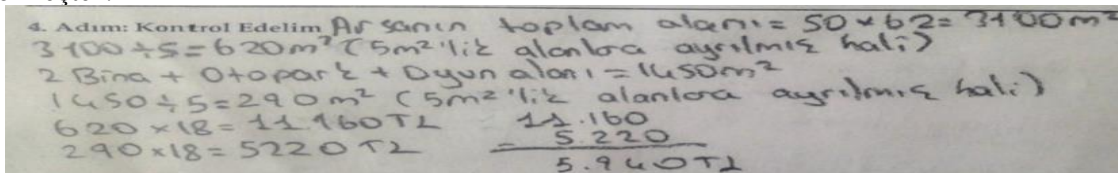 4. Adım: Kontrol Edelim Arsanın toplam alanı = 50 x 62 = 3100 m²
3100 ÷ 5 = 620 m² (5m²'lik alanlara ayrılmış hali)
2 Bina + Otopark + Oyun alanı = 1450m²
1450 ÷ 5 = 290 m² (5m²'lik alanlara ayrılmış hali)
620 x 18 = 11.160TL 11.160
290 x 18 = 5220 TL - 5.220
5.940TL